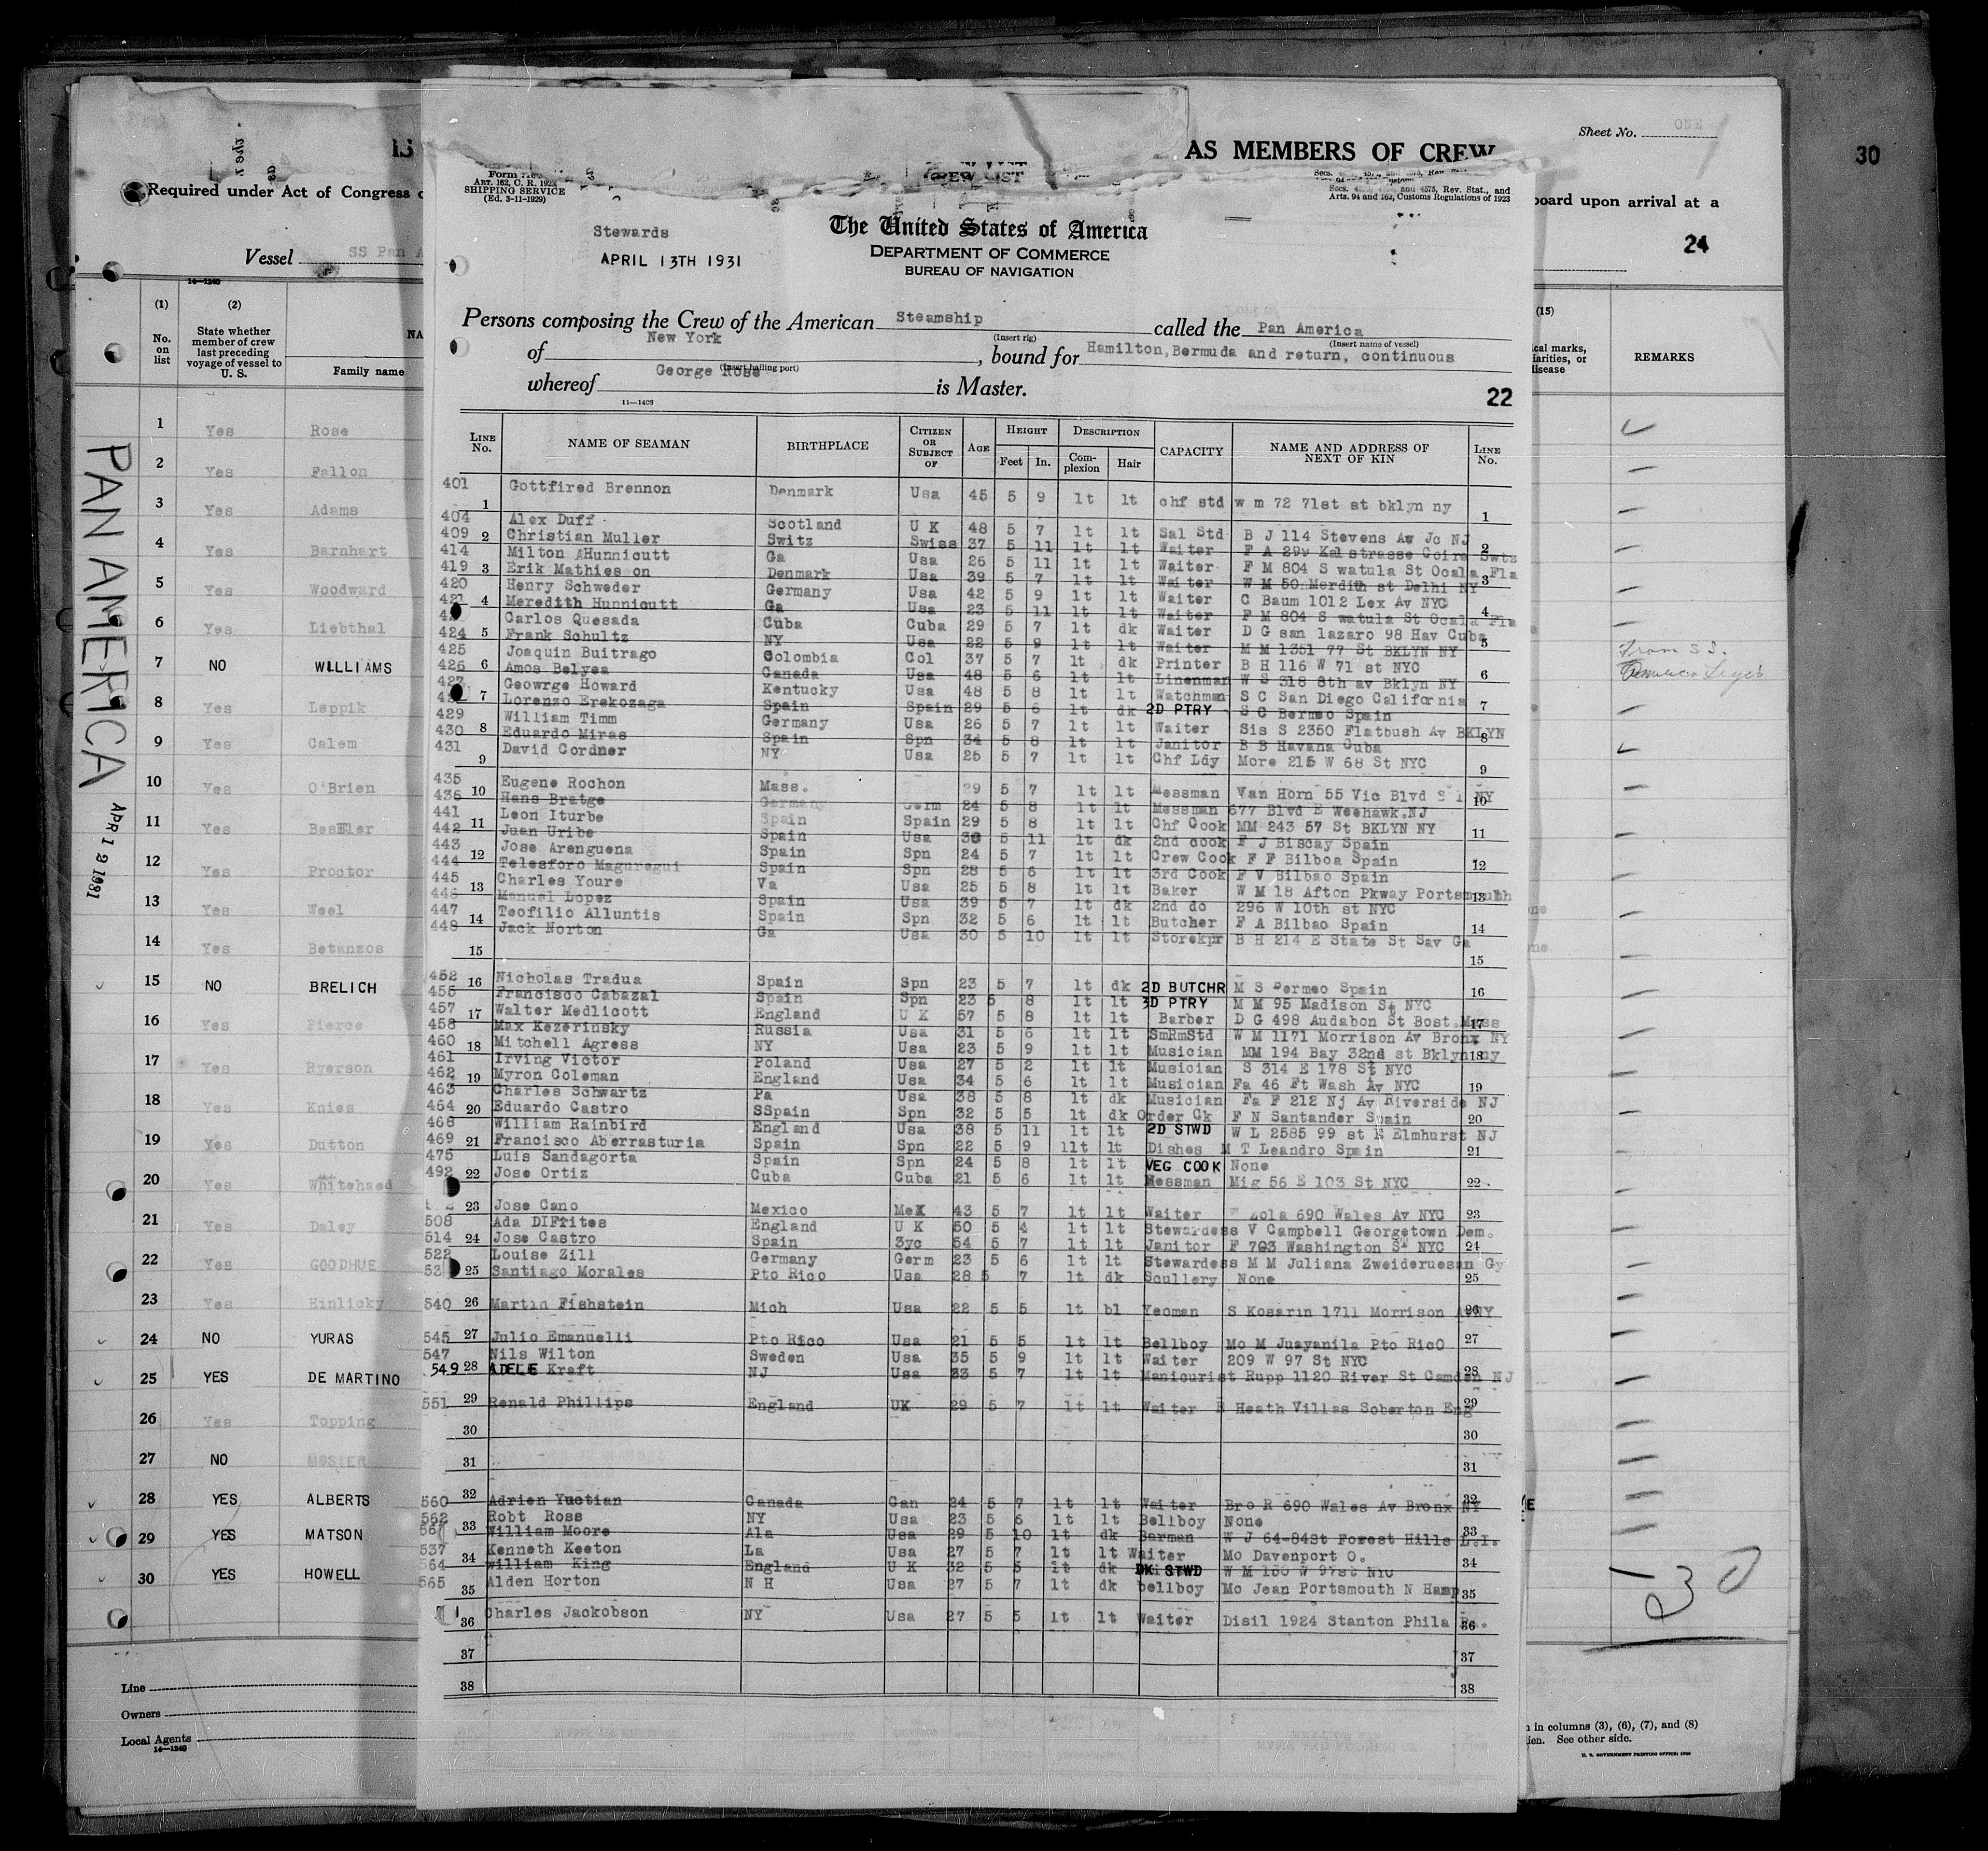 AS MEMBERS OF CREW
Sheet No. ONE
30
Required under Act of Congress
board upon arrival at a
24
Vessel SS Pan A
ART. 162, C. R. 1923
SHIPPING SERVICE
(Ed. 3-11-1929)
Secs. 4575, Rev. Stat., and
Arts. 94 and 162, Customs Regulations of 1923
Stewards
APRIL 13TH 1931
The United States of America
DEPARTMENT OF COMMERCE
BUREAU OF NAVIGATION
Persons composing the Crew of the American Steamship called the Pan America
(Insert rig) (Insert name of vessel)
of New York, bound for Hamilton, Bermuda and return, continuous
(Insert hailing port)
whereof George Rose is Master.
11—1408
22
LINE No. NAME OF SEAMAN BIRTHPLACE CITIZEN OR SUBJECT OF AGE HEIGHT Feet In. DESCRIPTION Complexion Hair CAPACITY NAME AND ADDRESS OF NEXT OF KIN LINE No.
401 1 Gottfired Brennon Denmark Usa 45 5 9 lt lt chf std w m 72 71st st bklyn ny 1
404 Alex Duff Scotland U K 48 5 7 lt lt Sal Std B J 114 Stevens Av Jc NJ
409 2 Christian Muller Switz Swiss 37 5 11 lt lt Waiter F A 299 Kalstrasse Coire Swtz 2
414 Milton AHunnicutt Ga Usa 26 5 11 lt lt Waiter F M 804 S watula St Ocala Fla
419 3 Erik Mathies on Denmark Usa 39 5 7 lt lt Waiter W M 50 Merdith st Delhi NY 3
420 Henry Schweder Germany Usa 42 5 9 lt lt Waiter C Baum 1012 Lex Av NYC
421 4 Meredith Hunnicutt Ga Usa 23 5 11 lt lt Waiter F M 804 S watula St Ocala Fla 4
Carlos Quesada Cuba Cuba 29 5 7 lt dk Waiter D G san lazaro 98 Hav Cuba
424 5 Frank Schultz NY Usa 22 5 9 lt lt Waiter M M 1351 77 St BKLYN NY 5
425 Joaquin Buitrago Colombia Col 37 5 7 lt dk Printer B H 116 W 71 st NYC
426 6 Amos Belyea Canada Usa 48 5 6 lt lt Linenman W S 318 8th av Bklyn NY 6
427 Geowrge Howard Kentucky Usa 48 5 8 lt lt Watchman S C San Diego California
7 Lorenzo Erekozaga Spain Spain 29 5 6 lt dk 2D PTRY S C Bermeo Spain 7
429 William Timm Germany Usa 26 5 7 lt lt Waiter Sis S 2350 Flatbush Av BKLYN
430 8 Eduardo Miras Spain Spn 34 5 8 lt lt Janitor B B Havana Cuba 8
431 9 David Cordner NY Usa 25 5 7 lt lt Chf Ldy More 215 W 68 St NYC 9
435 Eugene Rochon Mass. 29 5 7 lt lt Messman Van Horn 55 Vic Blvd S I NY
436 10 Hans Bratge Germany Germ 24 5 8 lt lt Messman 677 Blvd E Weehawk.NJ 10
441 Leon Iturbe Spain Spain 29 5 8 lt lt Chf Cook MM 243 57 St BKLYN NY
442 11 Juan Uribe Spain Usa 30 5 11 lt dk 2nd cook F J Biscay Spain 11
443 Jose Arenguena Spain Spn 24 5 7 lt lt Crew Cook F F Bilboa Spain
444 12 Telesforo Maguregui Spain Spn 28 5 6 lt lt 3rd Cook F V Bilbao Spain 12
445 Charles Youre Va Usa 25 5 8 lt lt Baker W M 18 Afton Pkway Portsmouth
446 13 Manuel Lopez Spain Usa 39 5 7 lt dk 2nd do 296 W 10th st NYC 13
447 Teofilio Alluntis Spain Spn 32 5 6 lt lt Butcher F A Bilbao Spain
448 14 Jack Norton Ga Usa 30 5 10 lt lt Storekpr B H 214 E State St Sav Ga 14
15 15
452 16 Nicholas Tradua Spain Spn 23 5 7 lt dk 2D BUTCHR M S Bermeo Spain 16
455 Francisco Cabazal Spain Spn 23 5 8 lt lt 3D PTRY M M 95 Madison St NYC
457 17 Walter Medlicott England U K 57 5 8 lt lt Barber D G 498 Audabon St Bost.Mass 17
458 Max Kezerinsky Russia Usa 31 5 6 lt lt SmRmStd W M 1171 Morrison Av Bronx NY
460 18 Mitchell Agress NY Usa 23 5 9 lt lt Musician MM 194 Bay 32nd st Bklyn ny 18
461 Irving Victor Poland Usa 27 5 2 lt lt Musician S 314 E 178 St NYC
462 19 Myron Coleman England Usa 34 5 6 lt lt Musician Fa 46 Ft Wash Av NYC 19
463 Charles Schwartz Pa Usa 38 5 8 lt dk Musician Fa F 212 Nj Av Riverside NJ
464 20 Eduardo Castro SSpain Spn 32 5 5 lt dk Order Ck F N Santander Spain 20
468 William Rainbird England Usa 38 5 11 lt lt 2D STWD W L 2585 99 st E Elmhurst NJ
469 21 Francisco Aberrasturia Spain Spn 22 5 9 llt lt Dishes M T Leandro Spain 21
475 Luis Sandagorta Spain Spn 24 5 8 lt lt VEG COOK None
492 22 Jose Ortiz Cuba Cuba 21 5 6 lt lt Messman Mig 56 E 103 St NYC 22
23 Jose Cano Mexico MeX 43 5 7 lt lt Waiter Zola 690 Wales Av NYC 23
508 Ada DIFrites England U K 50 5 4 lt lt Stewardess V Campbell Georgetown Dem.
514 24 Jose Castro Spain 3yc 54 5 7 lt lt Janitor F 703 Washington ST NYC 24
522 Louise Zill Germany Germ 23 5 6 lt lt Stewardess M M Juliana Zweideruesan Gy
25 Santiago Morales Pto Rico Usa 28 5 7 lt dk Scullery None 25
540 26 Martin Fishstein Mich Usa 22 5 5 lt bl Yeoman S Kosarin 1711 Morrison AvNY 26
545 27 Julio Emanuelli Pto Rico Usa 21 5 5 lt lt Bellboy Mo M Juayanila Pto RicO 27
547 Nils Wilton Sweden Usa 35 5 9 lt lt Waiter 209 W 97 St NYC
549 28 ADELE Kraft NJ Usa 33 5 7 lt lt Manicurist Rupp 1120 River St Camden NJ 28
551 29 Renald Phillips England UK 29 5 7 lt lt Waiter Heath Villas Soberton Eng 29
30 30
31 31
560 32 Adrien Yuctian Canada Can 24 5 7 lt lt Waiter Bro R 690 Wales Av Bronx NY 32
562 Robt Ross NY Usa 23 5 6 lt lt Bellboy None
33 William Moore Ala Usa 29 5 10 lt dk Barman W J 64-84St Forest Hills L.I. 33
537 Kenneth Keeton La Usa 27 5 7 lt lt Waiter Mo Davenport O.
564 34 William King England U K 32 5 5 lt dk DK STWD W M 150 W 97st NYC 34
565 35 Alden Horton N H Usa 27 5 7 lt dk bellboy Mo Jean Portsmouth N Hamp 35
36 Charles Jackobson NY Usa 27 5 5 lt lt Waiter Disil 1924 Stanton Phila Pa. 36
37 37
38 38
14—1240
(1) No. on list
(2) State whether member of crew last preceding voyage of vessel to U. S.
Family name
1 Yes Rose
2 Yes Fallon
3 Yes Adams
4 Yes Barnhart
5 Yes Woodward
6 Yes Liebthal
7 NO WILLIAMS
8 Yes Leppik
9 Yes Calem
10 Yes O'Brien
11 Yes Besller
12 Yes Proctor
13 Yes Weel
14 Yes Betanzos
15 NO BRELICH
16 Yes Pierce
17 Yes Ryerson
18 Yes Knies
19 Yes Dutton
20 Yes Whitehaed
21 Yes Daley
22 Yes GOODHUE
23 Yes Hinlicky
24 NO YURAS
25 YES DE MARTINO
26 Yes Topping
27 NO MOSIER
28 YES ALBERTS
29 YES MATSON
30 YES HOWELL
PAN AMERICA
APR 12 1931
Line
Owners
Local Agents
14—1240
(15)
cal marks,
iarities, or
disease
REMARKS
From S S.
American Legion
30
in columns (3), (6), (7), and (8)
ien. See other side.
U. S. GOVERNMENT PRINTING OFFICE: 1930